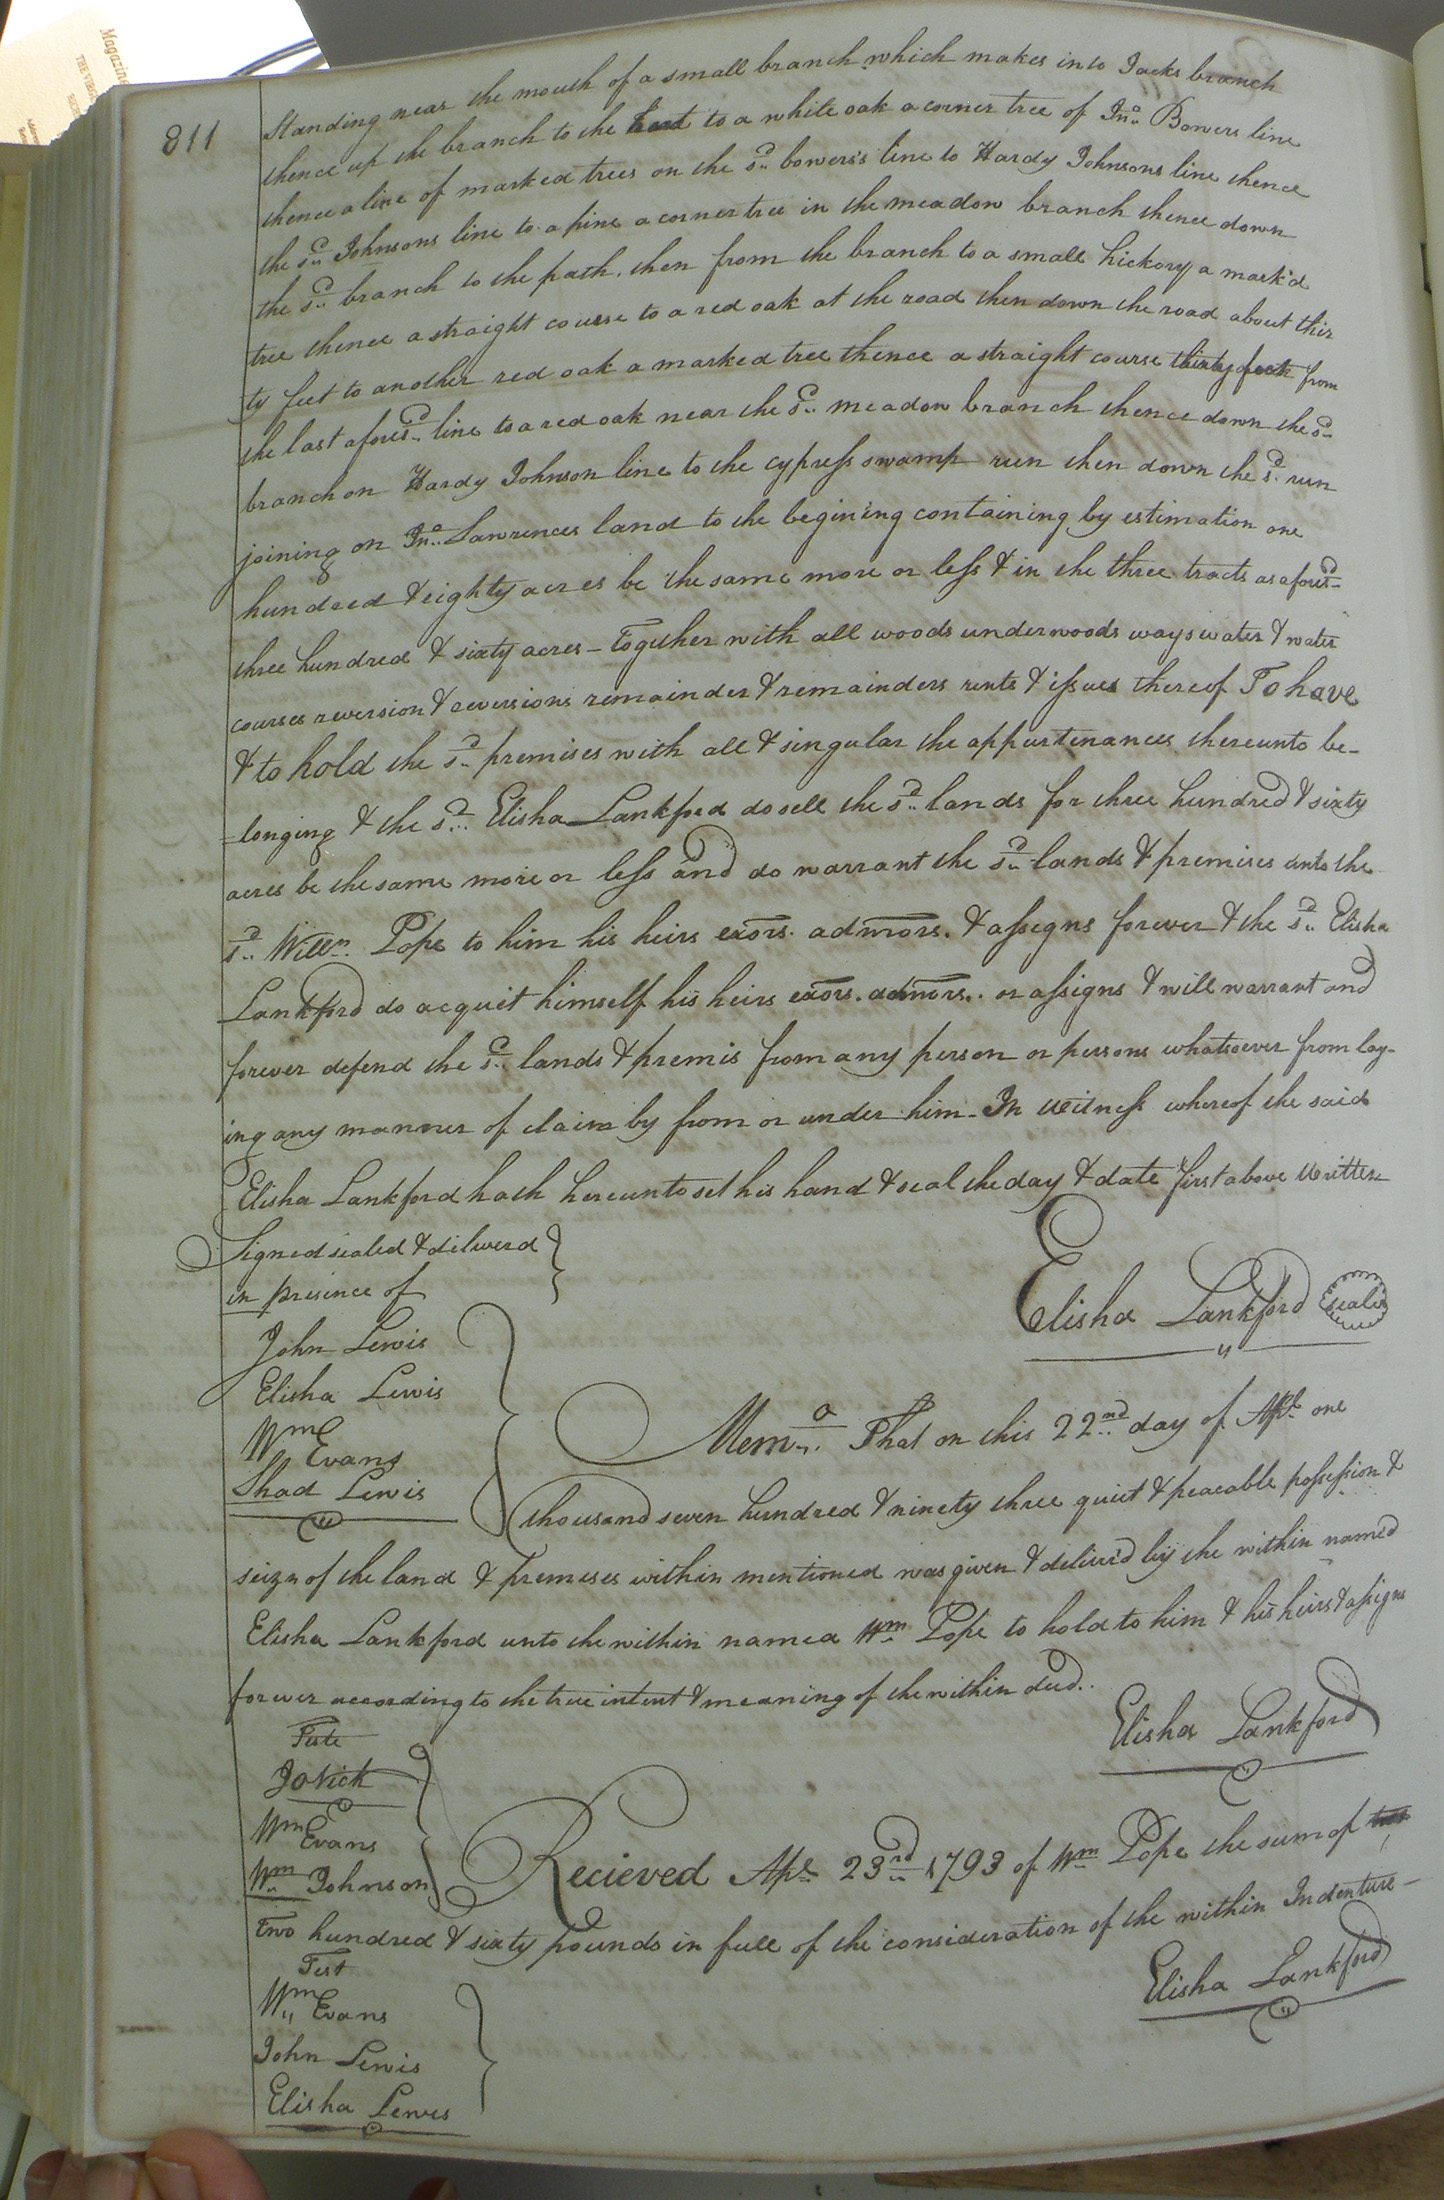 Magazine
811
Standing near the mouth of a small branch which makes into Jacks branch
thence up the branch to the head to a white oak a corner tree of Jno. Bowers line
thence a line of marked trees on the sd. bowers's line to Hardy Johnsons line thence
the sd. Johnsons line to a pine a corner tree in the meadow branch thence down
the sd. branch to the path, then from the branch to a small hickory a mark'd
tree thence a straight course to a red oak at the road then down the road about thir
ty feet to another red oak a marked tree thence a straight course thirty feet from
the last aforesd. line to a red oak near the sd. meadow branch thence down the sd.
branch on Hardy Johnson line to the cypress swamp run then down the sd. run
joining on Jno. Lawrences land to the begining containing by estimation one
hundred & eighty acres be the same more or less & in the three tracts as aforesd.
three hundred & sixty acres - Together with all woods underwoods ways water & water
courses reversion & reversions remainder & remainders rents & issues thereof To have
& to hold the sd. premises with all & singular the appurtenances thereunto be-
-longing & the sd. Elisha Lankford do sell the sd. lands for three hundred & sixty
acres be the same more or less and do warrant the sd. lands & premises unto the
sd. Willm. Pope to him his heirs exors. admors. & assigns forever & the sd. Elisha
Lankford do acquit himself his heirs exors. admors. or assigns & will warrant and
forever defend the sd. lands & premis from any person or persons whatsoever from lay-
ing any manner of claim by from or under him - In Witness whereof the said
Elisha Lankford hath hereunto set his hand & seal the day & date first above Written
Signed sealed & diliverd
in presince of
Elisha Lankford seal
John Lewis
Elisha Lewis
Wm Evans
Shad Lewis
Memo. That on this 22nd. day of Apl. one
thousand seven hundred & ninety three quiet & peacable possession &
seizn of the land & premeses within mentioned was given & deliver'd by the within named
Elisha Lankford unto the within named Wm. Pope to hold to him & his heirs & assigns
forever according to the true intent & meaning of the within deed..
Elisha Lankford
Teste
Jo Vick
Wm Evans
Wm Johnson
Recieved Apl. 23rd. 1793 of Wm Pope the sum of
Two hundred & sixty pounds in full of the consideration of the within Indenture -
Elisha Lankford
Test
Wm Evans
John Lewis
Elisha Lewes